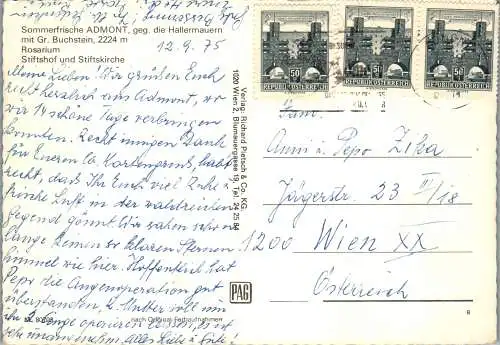 Sommerfrische ADMONT, geg. die Hallermauern
mit Gr. Buchstein, 2224 m
Rosarium
Stiftshof und Stiftskirche
12.9.75
Meine Lieben! Wir grüßen Euch
recht herzlich aus Admont, wo
wir 14 schöne Tage verbringen
konnten. Recht innigen Dank
für Eueren lb. Kartengruß, habt
recht, daß Ihr Euch viel Ruhe
frische Luft in der waldreichen
Gegend gönnt. Wir sahen schon
lange keinen so klaren Sternen
himmel wie hier. Hoffentlich hat
Pepo die Augenoperation gut
überstanden, d. Mutter soll sich
Auge operieren lassen, es ist
sehr unangenehm. Alles Liebe u. Gute!
Verlag: Richard Pietsch & Co. KG.
1020 Wien 2, Blumauergasse 19, Tel. 24 25 84
PAG
nach Original-Farbaufnahmen
50
5g
5g
REPUBLIK ÖSTERREICH
REPUBLIK ÖSTERREICH
REPUBLIK ÖSTERREICH
Fam.
Anni u. Pepo Zika
Jägerstr. 23 II/18
1200 Wien XX
Österreich
8